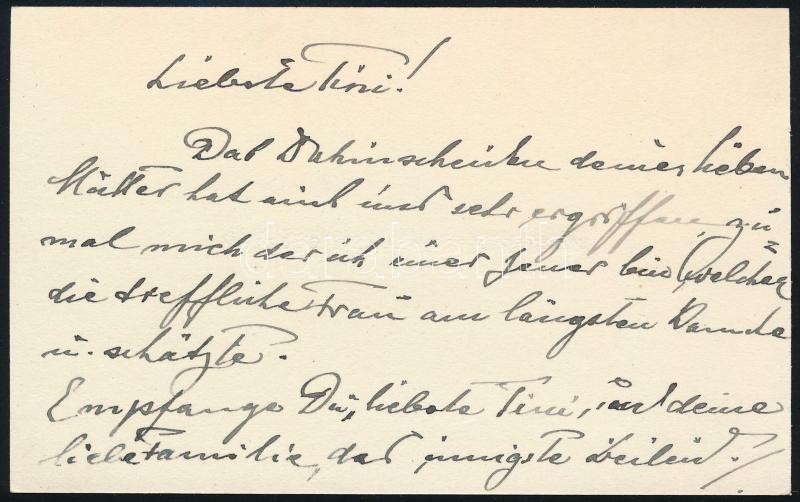 Liebste Tini!
Das Dahinscheiden deiner lieben
Mutter hat auch uns sehr ergriffen, zu=
mal mich der ich einer jener bin, welcher
die treffliche Frau am längsten kannte
u. schätzte.
Empfange Du, liebste Tini, und deine
liebe Familie, das innigste Beileid!